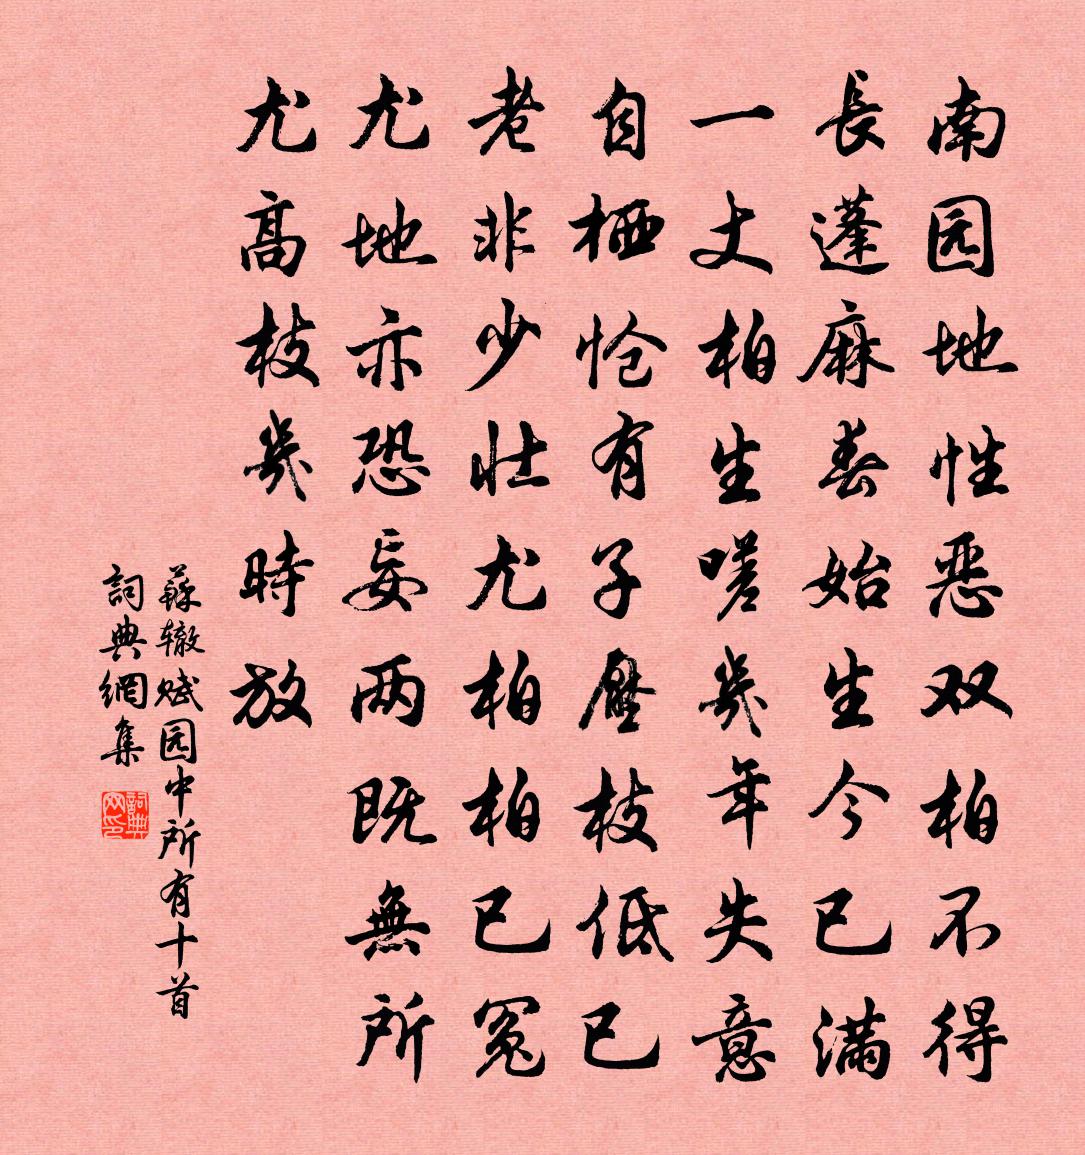 南园地性恶双柏不得
長蓬麻春始生今已满
一丈柏生嗟幾年失意
自栖怆有子壓枝低已
老非少壮尤柏柏已冤
尤地亦恐妄两既無所
尤高枝幾時放
蘇辙赋园中所有十首
詞典網集
詞典网印